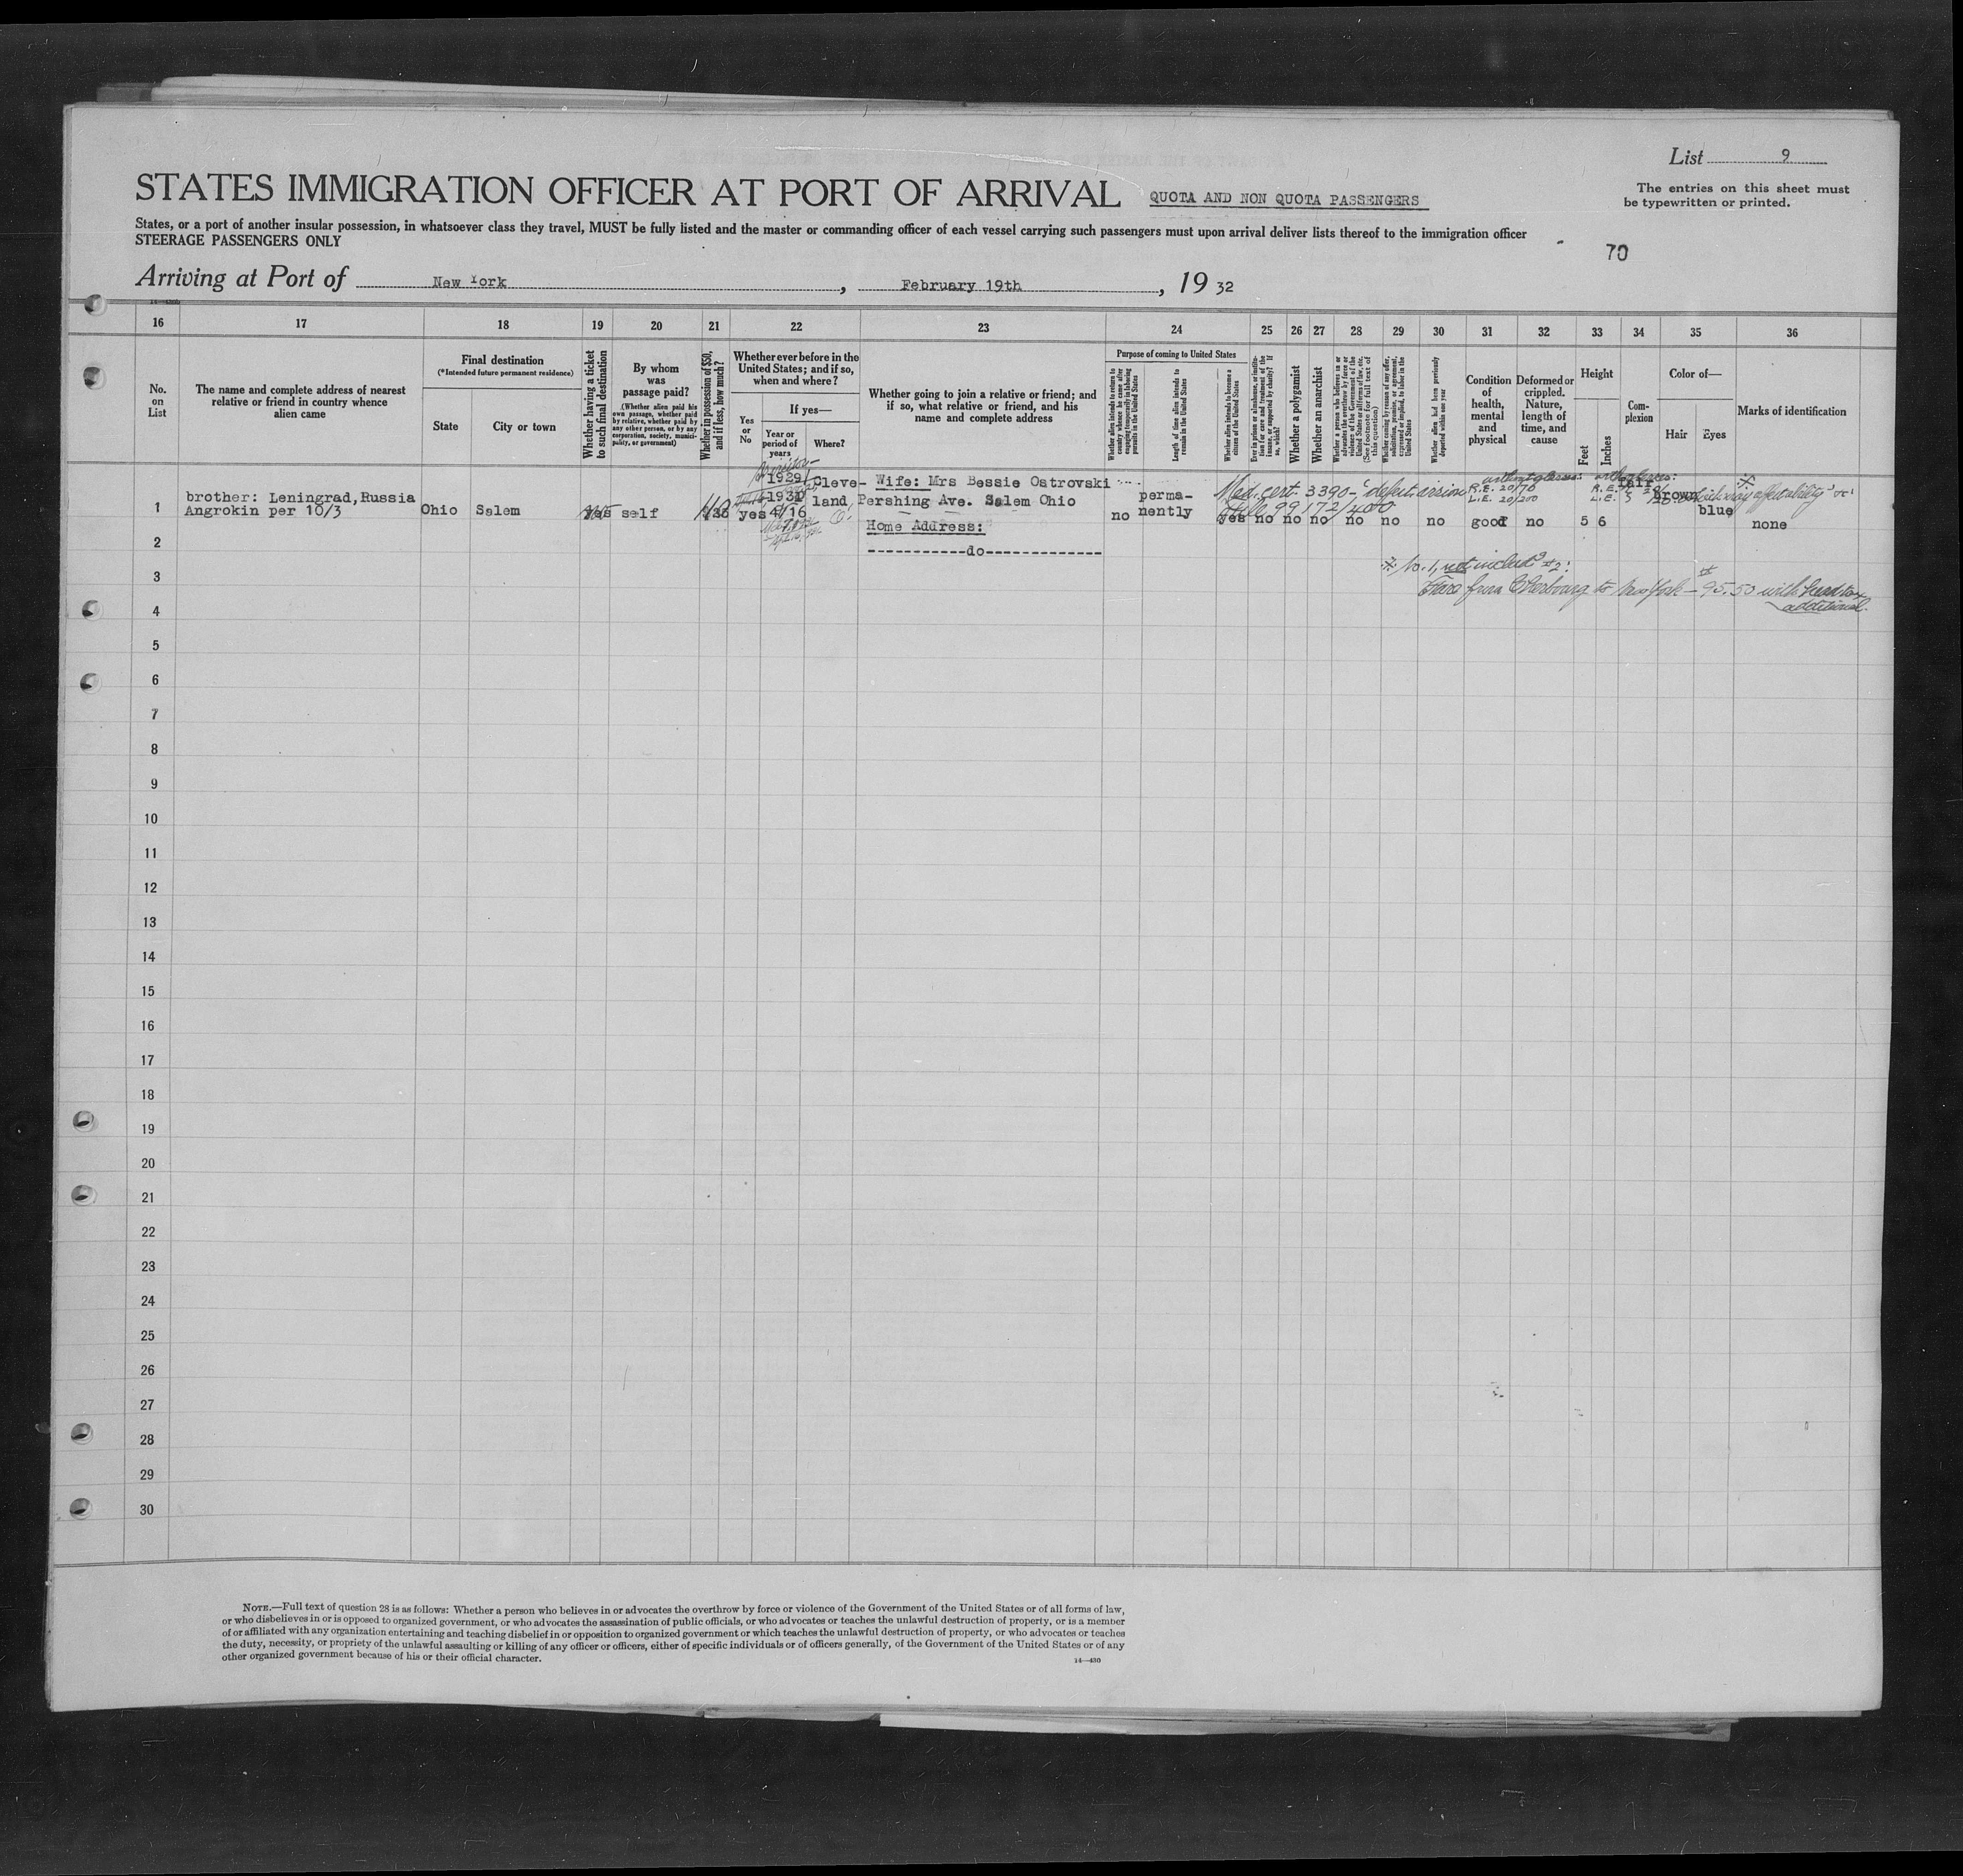 List 9
The entries on this sheet must
be typewritten or printed.
STATES IMMIGRATION OFFICER AT PORT OF ARRIVAL QUOTA AND NON QUOTA PASSENGERS
States, or a port of another insular possession, in whatsoever class they travel, MUST be fully listed and the master or commanding officer of each vessel carrying such passengers must upon arrival deliver lists thereof to the immigration officer
STEERAGE PASSENGERS ONLY
70
Arriving at Port of New York, February 19th, 19 32
16 17 18 19 20 21 22 23 24 25 26 27 28 29 30 31 32 33 34 35 36
No.
on
List
The name and complete address of nearest
relative or friend in country whence
alien came
Final destination
(*Intended future permanent residence)
State
City or town
Whether having a ticket
to such final destination
By whom
was
passage paid?
(Whether alien paid his
own passage, whether paid
by relative, whether paid by
any other person, or by any
corporation, society, munici-
pality, or government)
Whether in possession of $50,
and if less, how much?
Whether ever before in the
United States; and if so,
when and where?
Yes
or
No
If yes—
Year or
period of
years
Where?
Whether going to join a relative or friend; and
if so, what relative or friend, and his
name and complete address
Purpose of coming to United States
Whether alien intends to return to
country whence he came after
engaging temporarily in laboring
pursuits in the United States
Length of time alien intends to
remain in the United States
Whether alien intends to become a
citizen of the United States
Ever in prison or almshouse, or institu-
tion for care and treatment of the
insane, or supported by charity? If
so, which?
Whether a polygamist
Whether an anarchist
Whether a person who believes in or
advocates the overthrow by force or
violence of the Government of the
United States or all forms of law, etc.
(See footnote for full text of
this question)
Whether coming by reason of any offer,
solicitation, promise, or agreement,
expressed or implied, to labor in the
United States
Whether alien had been previously
deported within one year
Condition
of
health,
mental
and
physical
Deformed or
crippled.
Nature,
length of
time, and
cause
Height
Feet
Inches
Com-
plexion
Color of—
Hair
Eyes
Marks of identification
1
brother: Leningrad, Russia
Angrokin per 10/3
Ohio Salem yes self yes
1929
1931
4/16
Cleve-
land
Wife: Mrs Bessie Ostrovski
Pershing Ave. Salem Ohio
Home Address:
-----------do-------------
no
perma-
nently
Med. cert. 3390 - defect. vision
99172/400
without glasses:
R.E. 20/70
L.E. 20/200
yes no no no no no no good no 5 6 fair brown blue none
2
3
* No. 1, not includ^g #2:
Fare from Cherbourg to New York - $95.50 with head tax
additional.
4
5
6
7
8
9
10
11
12
13
14
15
16
17
18
19
20
21
22
23
24
25
26
27
28
29
30
NOTE.—Full text of question 28 is as follows: Whether a person who believes in or advocates the overthrow by force or violence of the Government of the United States or of all forms of law,
or who disbelieves in or is opposed to organized government, or who advocates the assassination of public officials, or who advocates or teaches the unlawful destruction of property, or is a member
of or affiliated with any organization entertaining and teaching disbelief in or opposition to organized government or which teaches the unlawful destruction of property, or who advocates or teaches
the duty, necessity, or propriety of the unlawful assaulting or killing of any officer or officers, either of specific individuals or of officers generally, of the Government of the United States or of any
other organized government because of his or their official character.
14—430